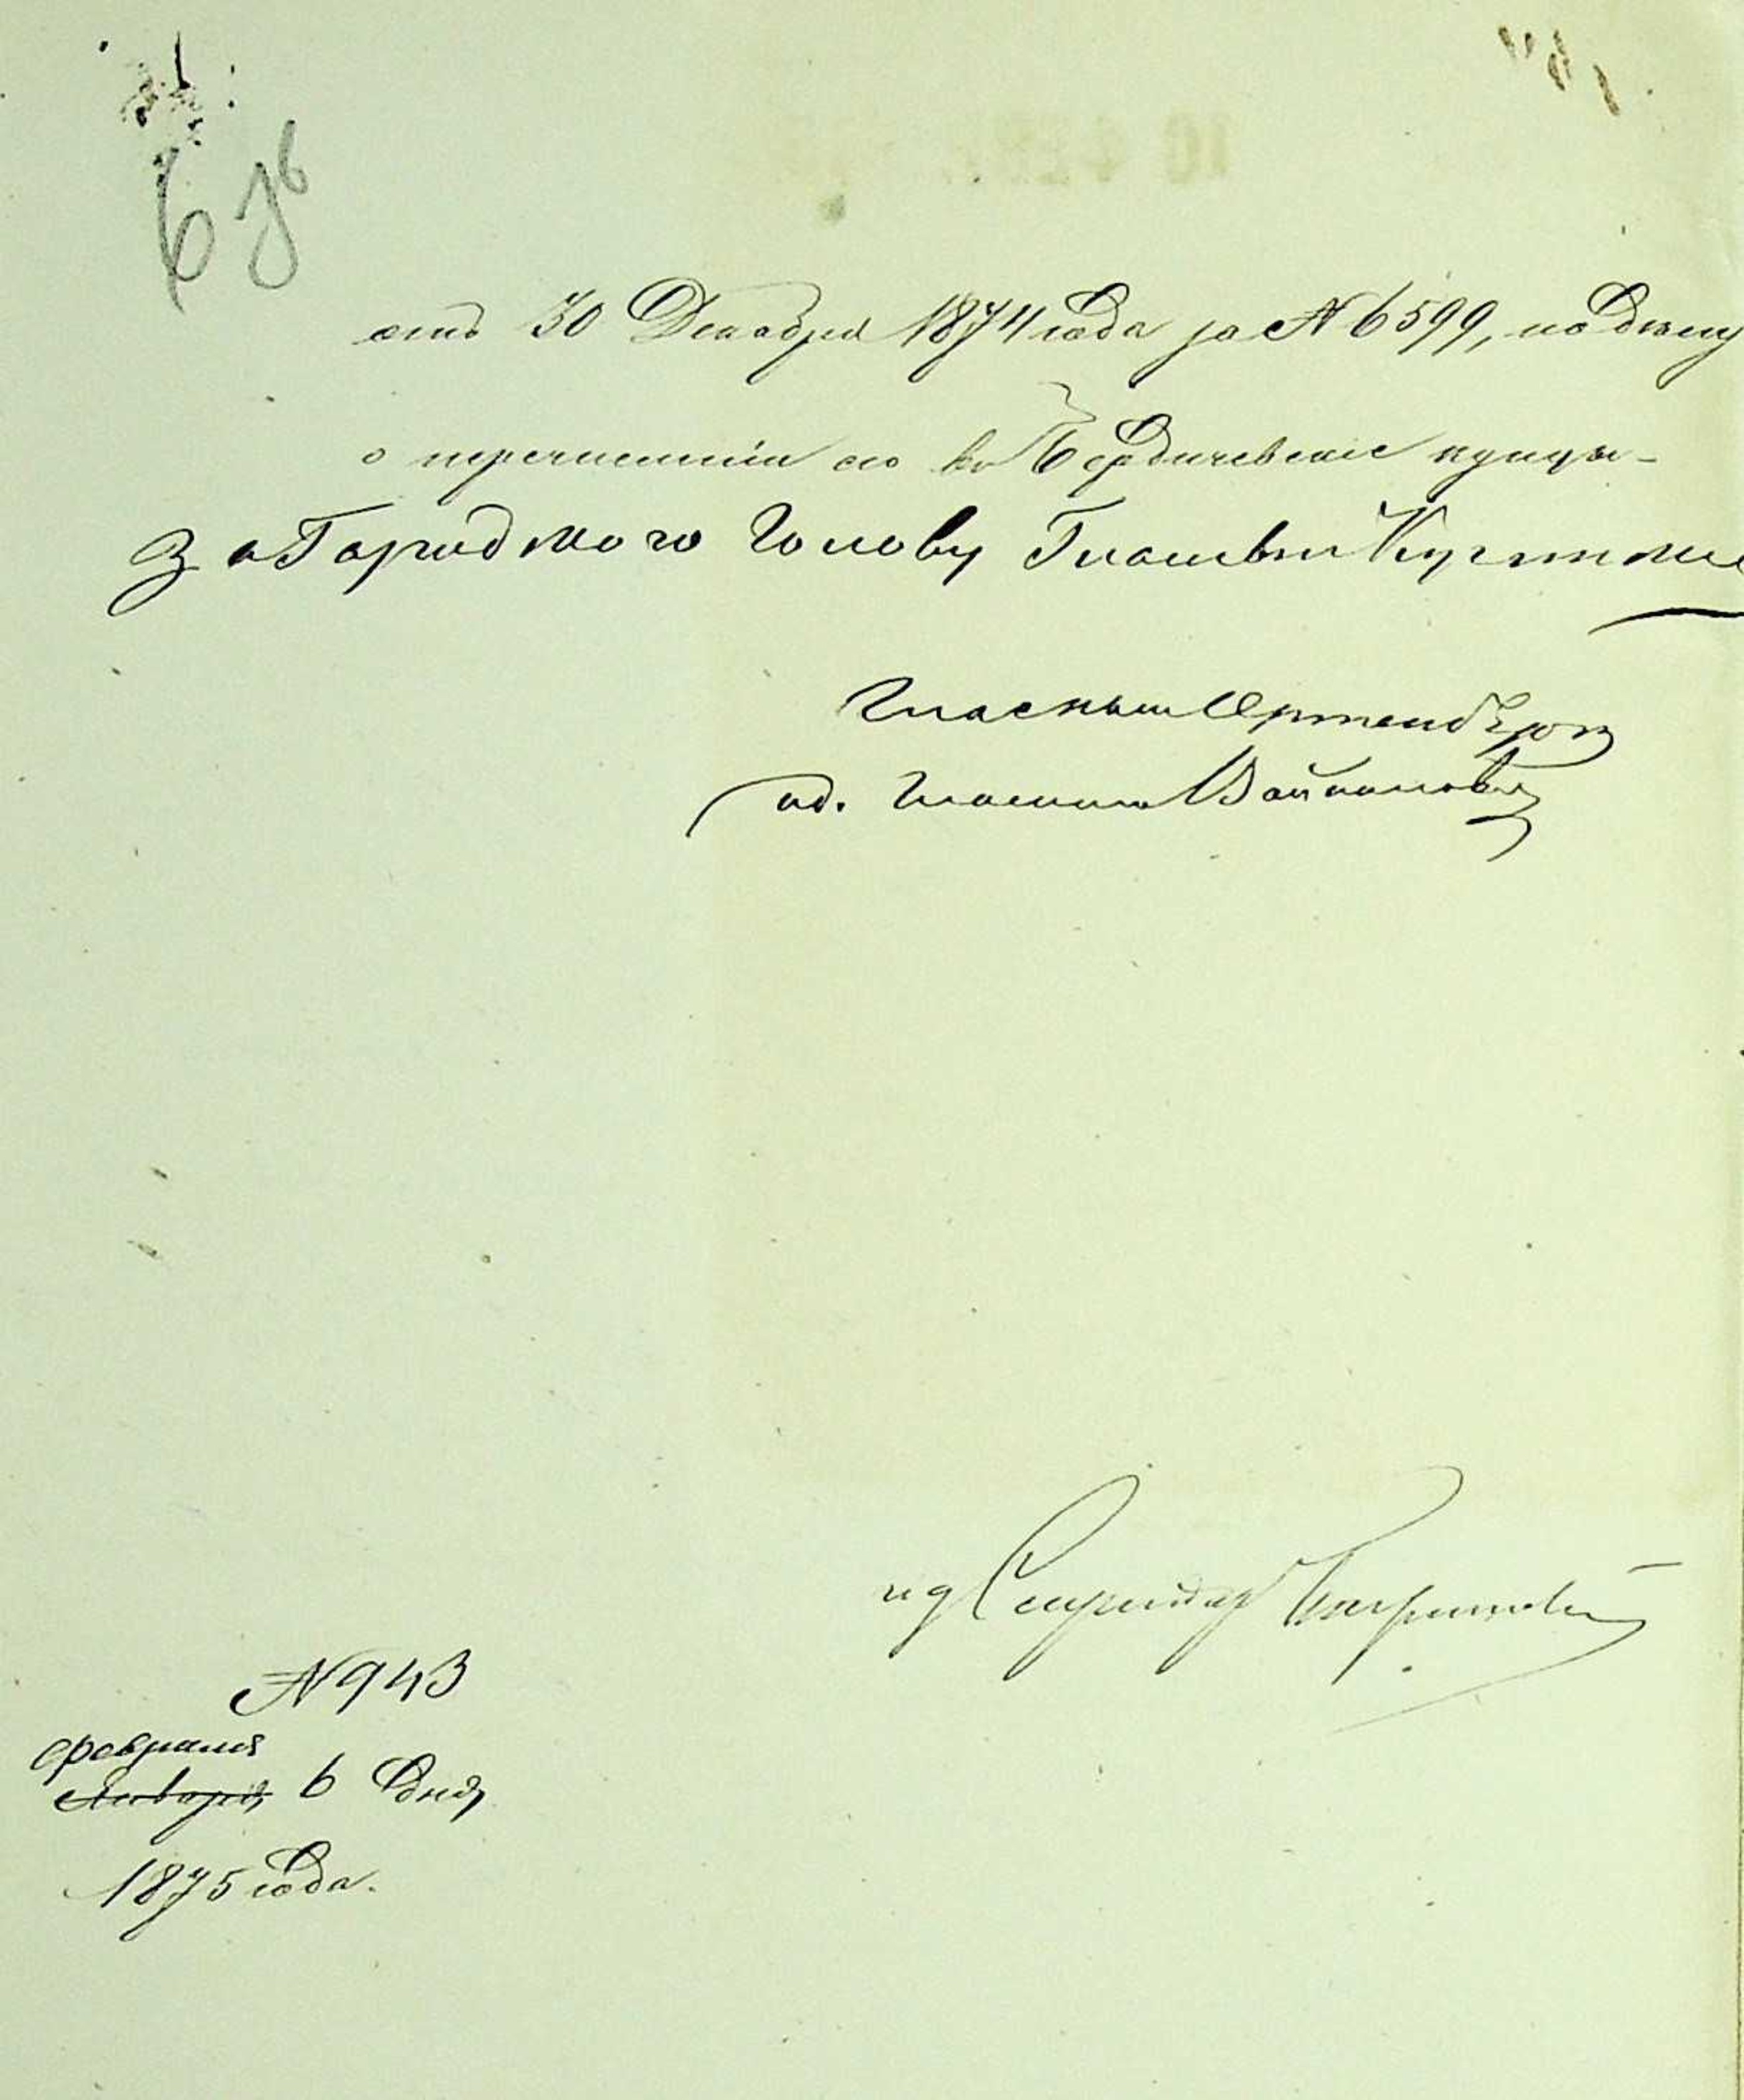 отъ 30 Декабря 1874 года за № 6599, по делу
о перечисленіи его въ Бердичевскіе купцы-
За Городского Голову Гласный
Гласный Ортенбергъ
ид. Гласнаго
ид Секретаря
№ 943
февраля
Января 6 дня
1875 года.